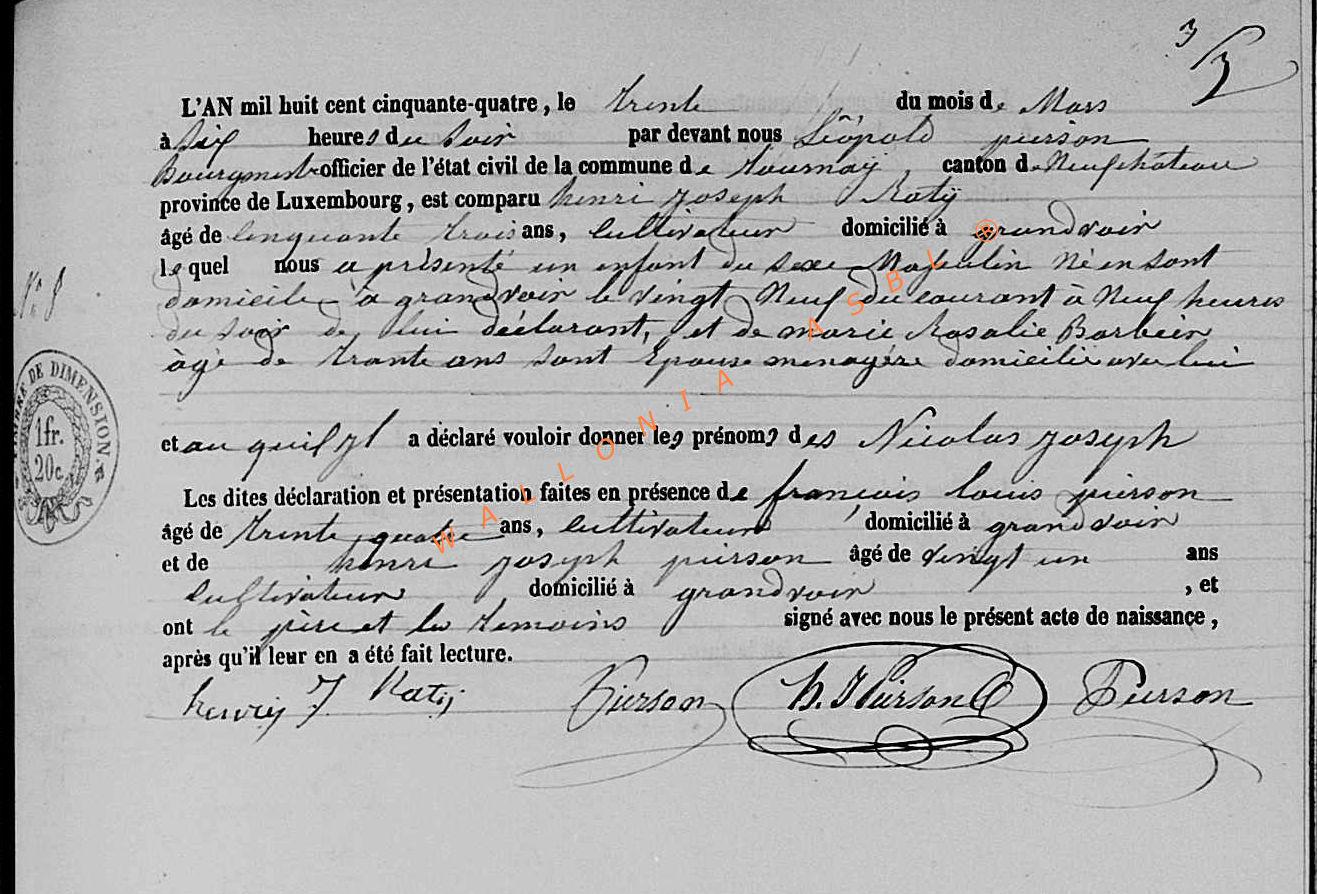 3
3
L'AN mil huit cent cinquante-quatre, le trente du mois de Mars
à Six heures du Soir par devant nous Léopold pierson
Bourgmestre officier de l'état civil de la commune de tournay, canton de Neufchateau
province de Luxembourg, est comparu henri joseph Raty
âgé de Cinquante trois ans, Cultivateur domicilié à grandvoir
le quel nous a présenté un enfant du sexe Masculin Né en sont
domicile à grandvoir le vingt Neuf du courant à Neuf heures
du soir de lui déclarant, et de marie Rosalie Barbein
âgé de trante ans sont Epouse menagère domicilié avec lui
et au quel il a déclaré vouloir donner les prénoms des Nicolas joseph
Les dites déclaration et présentation faites en présence de françois louis pierson
âgé de trente quatre ans, Cultivateur domicilié à grandvoir
et de henri joseph pierson âgé de vingt un ans
Cultivateur domicilié à grandvoir , et
ont le père et les temoins signé avec nous le présent acte de naissance,
après qu'il leur en a été fait lecture.
henry J Raty Pierson h. J Pierson Pierson
N° 8
TIMBRE DE DIMENSION
1 fr.
20 c.
WALLONIA ASBL